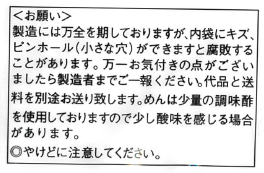 ＜お願い＞
製造には万全を期しておりますが、内袋にキズ、
ピンホール(小さな穴)ができますと腐敗する
ことがあります。万一お気付きの点がござい
ましたら製造者までご一報ください。代品と送
料を別途お送り致します。めんは少量の調味酢
を使用しておりますので少し酸味を感じる場合
があります。
◎やけどに注意してください。